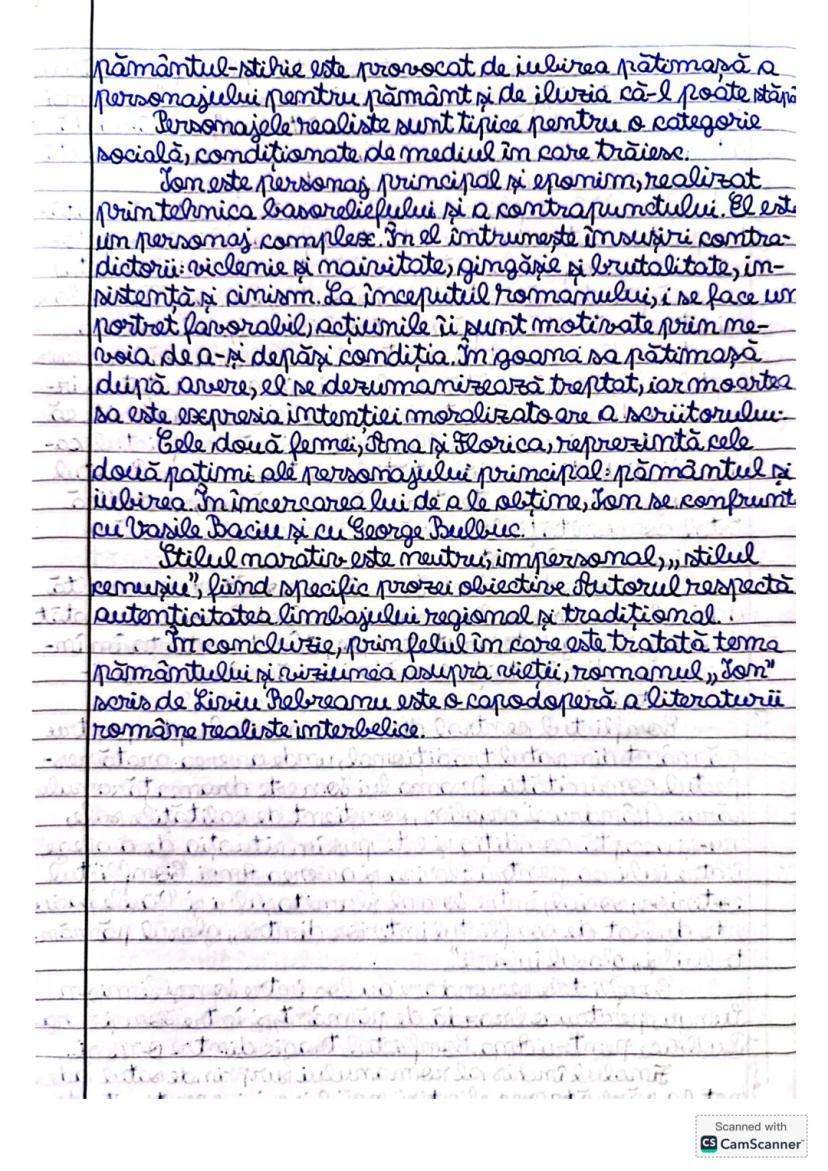 pământul-stihie este provocat de iubirea pătimașă a
personajului pentru pământ și de iluzia că-l poate stăpâ
Personajele realiste sunt tipice pentru o categorie
socială, condiționate de mediul în care trăiesc.
Ion este personaj principal și eponim, realizat
prin tehnica basoreliefului și a contrapunctului. El este
un personaj complex. În el întrunește însușiri contra-
dictorii: viclenie și naivitate, gingășie și brutalitate, in-
sistență și cinism. La începutul romanului, i se face un
portret favorabil, acțiunile îi sunt motivate prin ne-
voia de a-și depăși condiția. În goana sa pătimașă
după avere, el se dezumanizează treptat, iar moartea
sa este expresia intenției moralizatoare a scriitorului.
Cele două femei, Ana și Florica, reprezintă cele
două patimi ale personajului principal: pământul și
iubirea. În încercarea lui de a le obține, Ion se confrunt
cu Vasile Baciu și cu George Bulbuc.
Stilul narativ este neutru, impersonal, „stilul
cenușiu", fiind specific prozei obiective. Autorul respectă
autenticitatea limbajului regional și tradițional.
În concluzie, prin felul în care este tratată tema
pământului și viziunea asupra vieții, romanul „Ion"
scris de Liviu Rebreanu este o capodoperă a literaturii
române realiste interbelice.
Scanned with
CS CamScanner